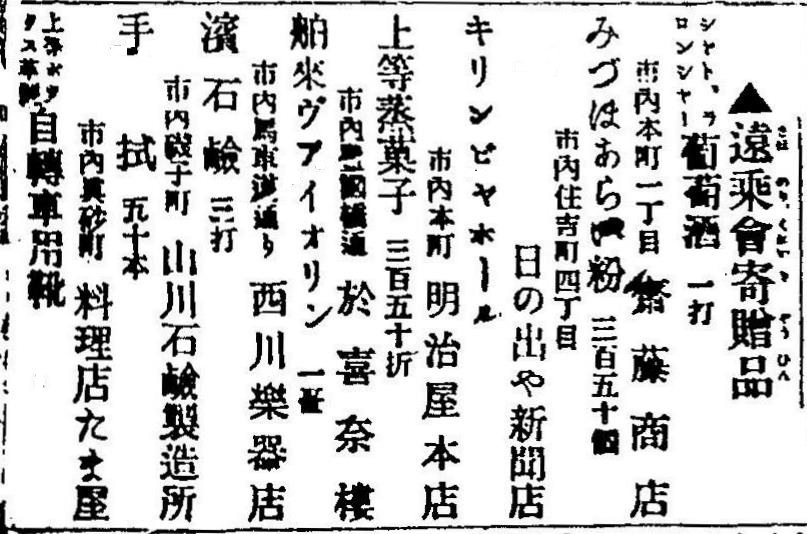 ▲遠乘會寄贈品
シャトーラ
ロンシャー
葡萄酒 一打
市内本町一丁目 齋藤商店
みづほあらひ粉 三百五十個
市内住吉町四丁目
日の出や新聞店
キリンビヤホール
市内本町 明治屋本店
上等蒸菓子 三百五十折
於喜奈樓
舶來ヴアイオリン 一臺
市内馬車道通り 西川樂器店
濱石鹼 三打
市内磯子町 山川石鹼製造所
手拭 五十本
市内真砂町 料理店たま屋
自轉車用靴